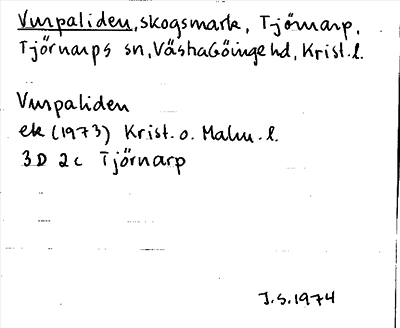 Vurpaliden, skogsmark, Tjörnarp,
Tjörnarps sn, Västra Göinge hd, Krist. l.
Vurpaliden
ek (1973) Krist. o. Malm. l.
3D 2c Tjörnarp
J.S. 1974